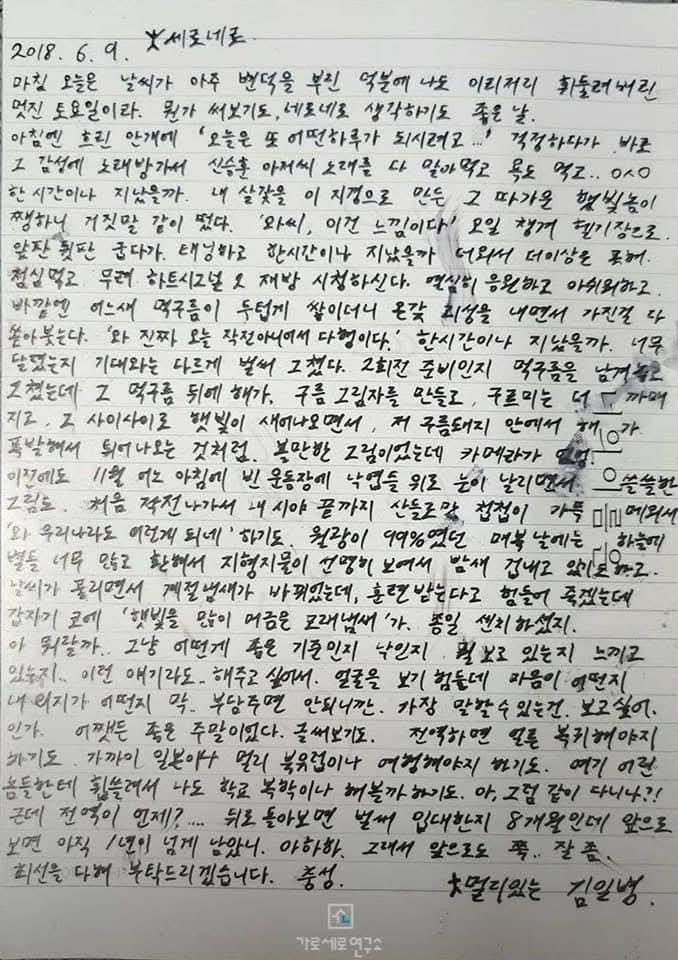 2018. 6. 9. 세로네로
마침 오늘은 날씨가 아주 변덕을 부린 덕분에 나도 이리저리 휘둘려버린
멋진 토요일이라. 뭔가 써보기도, 네로네로 생각하기도 좋은 날.
아침엔 흐린 안개에 '오늘은 또 어떤하루가 되시려고...' 걱정하다가 바로
그 감성에 노래방가서 신승훈 아저씨 노래를 다 말아먹고 욕도 먹고..
한시간이나 지났을까. 내 살갗을 이 지경으로 만든 그 따가운 햇빛놈이
쨍하니 거짓말 같이 떴다. '와씨, 이건 느낌이다' 오일 챙겨 헬기장으로.
앞판 뒷판 굽다가. 태닝하고 한시간이나 지났을까 더워서 더이상은 못해.
점심먹고 무려 하트시그널 2 재방 시청하신다. 열심히 응원하고 아쉬워하고.
바깥엔 어느새 먹구름이 두텁게 쌓이더니 온갖 괴성을 내면서 가진걸 다
쏟아붓는다. '와 진짜 오늘 작전아니어서 다행이다.' 한시간이나 지났을까. 너무
달렸는지 기대와는 다르게 벌써 그쳤다. 2회전 준비인지 먹구름을 남겨놓고
그쳤는데 그 먹구름 뒤에 해가. 구름 그림자를 만들고, 구르미는 더 까매
지고, 그 사이사이로 햇빛이 새어나오면서, 저 구름돼지 안에서 해가
폭발해서 튀어나오는 것처럼. 볼만한 그림이었는데 카메라가
이전에도 11월 어느 아침에 빈 운동장에 낙엽들 위로 눈이 날리면서 쓸쓸한
그림도. 처음 작전나가서 내 시야 끝까지 산들로만 첩첩이 가득 메워서
'와 우리나라도 이런게 되네' 하기도. 월광이 99%였던 매복날에는 하늘에
별들 너무 많고 환해서 지형지물이 선명히 보여서 밤새 겁내고 있기도하고.
날씨가 풀리면서 계절냄새가 바뀌었는데, 훈련받는다고 힘들어 죽겠는데
갑자기 코에 '햇빛을 많이 머금은 모래냄새'가. 종일 센치하셨지.
아 뭐랄까.. 그냥 어떤게 좋은 기준인지 낙인지 뭘 보고 있는지 느끼고
있는지.. 이런 얘기라도.. 해주고 싶어서. 얼굴을 보기 힘들데 마음이 어떤지
내 의지가 어떤지 막.. 부담주면 안되니깐. 가장 말할수있는건. 보고싶어.
인가. 어쨌든 좋은 주말이었다. 글써보기도. 전역하면 얼른 복귀해야지
하기도. 가까이 일본이나 멀리 북유럽이나 여행해야지 하기도. 여기 어린
놈들한테 휩쓸려서 나도 학교 복학이나 해볼까하기도. 아, 그럼 같이 다니나?!
근데 전역이 언제?.... 뒤로 돌아보면 벌써 입대한지 8개월인데 앞으로
보면 아직 1년이 넘게 남았니. 아하하. 그래서 앞으로도 쭉.. 잘 좀.
최선을 다해 부탁드리겠습니다. 충성.
멀리있는 김일병.
가로세로연구소